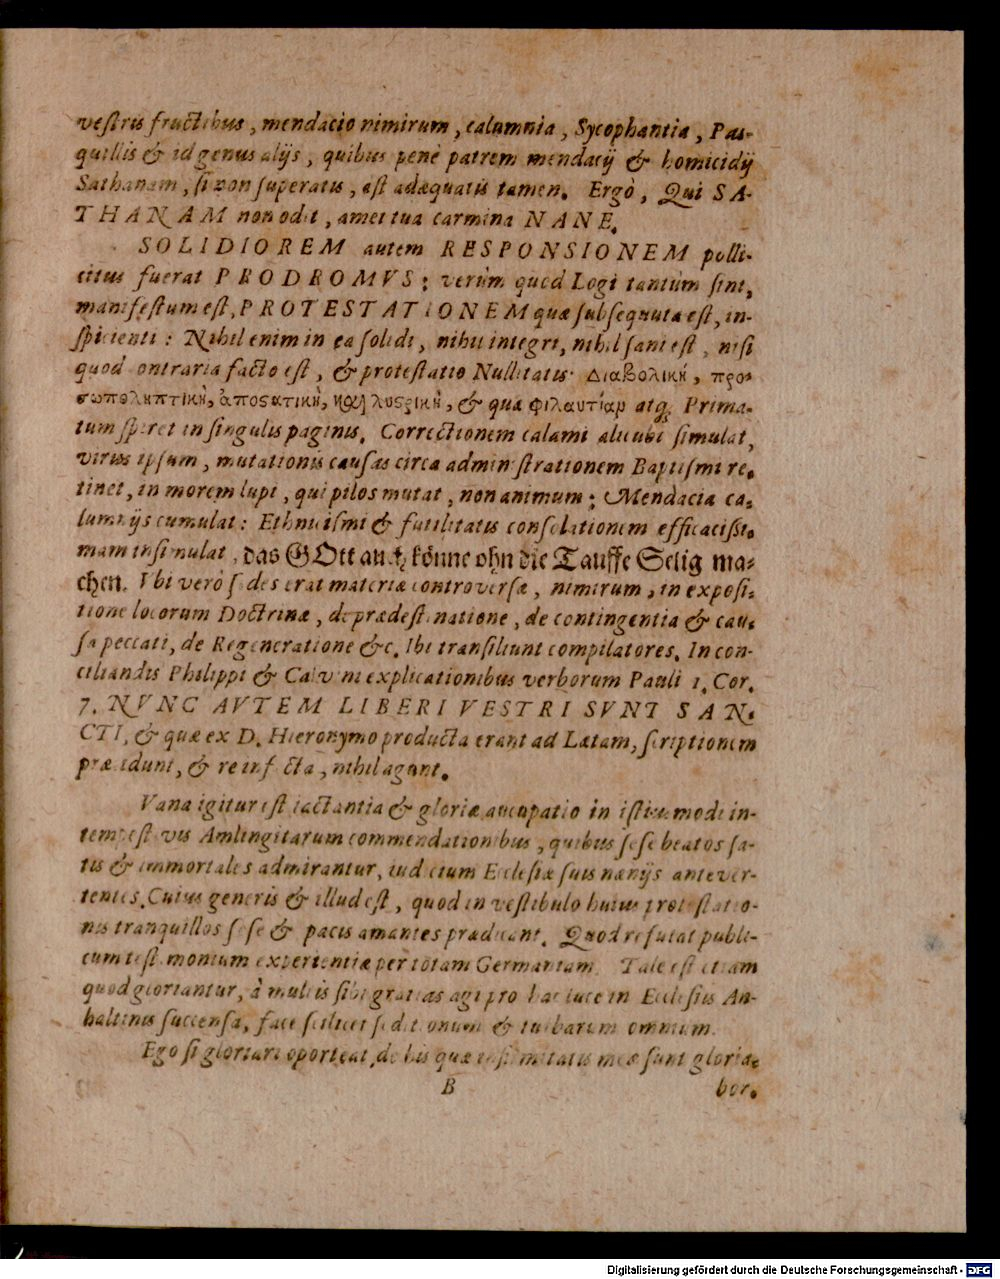 vestris fructibus, mendacio nimirum, calumnia, Sycophantia, Pas-
quillis & id genus alijs, quibus penè patrem mendacij & homicidij
Sathanam, si non superatis, est adæquatis tamen. Ergò, Qui SA-
THANAM non odit, amet tua carmina NANE.
SOLIDIOREM autem RESPONSIONEM polli-
citus fuerat PRODROMVS: verùm quod Logi tantùm sint,
manifestum est, PROTESTATIONEM quæ subsequuta est, in-
spicienti: Nihil enim in ea solidi, nihil integri, nihil sani est, nisi
quod contraria facto est, & protestatio Nullitatis διαβολικὴ, προ-
σωποληπτικὴ, ἀποστατικὴ, καὶ λυστρικὴ, & quæ φιλαυτίαν atq; Prima-
tum spiret in singulis paginis. Correctionem calami alicubi simulat,
virus ipsum, mutationis causas circa administrationem Baptismi re-
tinet, in morem lupi, qui pilos mutat, non animum: Mendacia ca-
lumnijs cumulat: Ethnicismi & futilitatis consolationem efficacissi-
mam insimulat, das GOtt auch könne ohn die Tauffe Selig ma-
chen. Vbi verò sedes erat materiæ controversæ, nimirum, in exposi-
tione locorum Doctrinæ, de prædestinatione, de contingentia & cau-
sa peccati, de Regeneratione &c. Ibi transiliunt compilatores. In con-
ciliandis Philippi & Calvini explicationibus verborum Pauli 1. Cor.
7. NVNC AVTEM LIBERI VESTRI SVNT SAN-
CTI, & quæ ex D. Hieronymo producta erant ad Lætam, scriptionem
præcidunt, & re infecta, nihil agunt.
Vana igitur est iactantia & gloriæ aucupatio in istiusmodi in-
tempestivis Amlingitarum commendationibus, quibus sese beatos sa-
tis & immortales admirantur, iudicium Ecclesiæ suis nænijs antever-
tentes. Cuius generis & illud est, quod in vestibulo huius protestatio-
nis tranquillos sese & pacis amantes prædicant. Quod refutat publi-
cum testimonium experientiæ per totam Germaniam. Tale est etiam
quod gloriantur, à multis sibi gratias agi pro hac luce in Ecclesiis An-
haltinis succensa, face scilicet seditionum & turbarum omnium.
Ego si gloriari oporteat, de his quæ infirmitatis meæ sunt gloria-
B
bor.
Digitalisierung gefördert durch die Deutsche Forschungsgemeinschaft - DFG